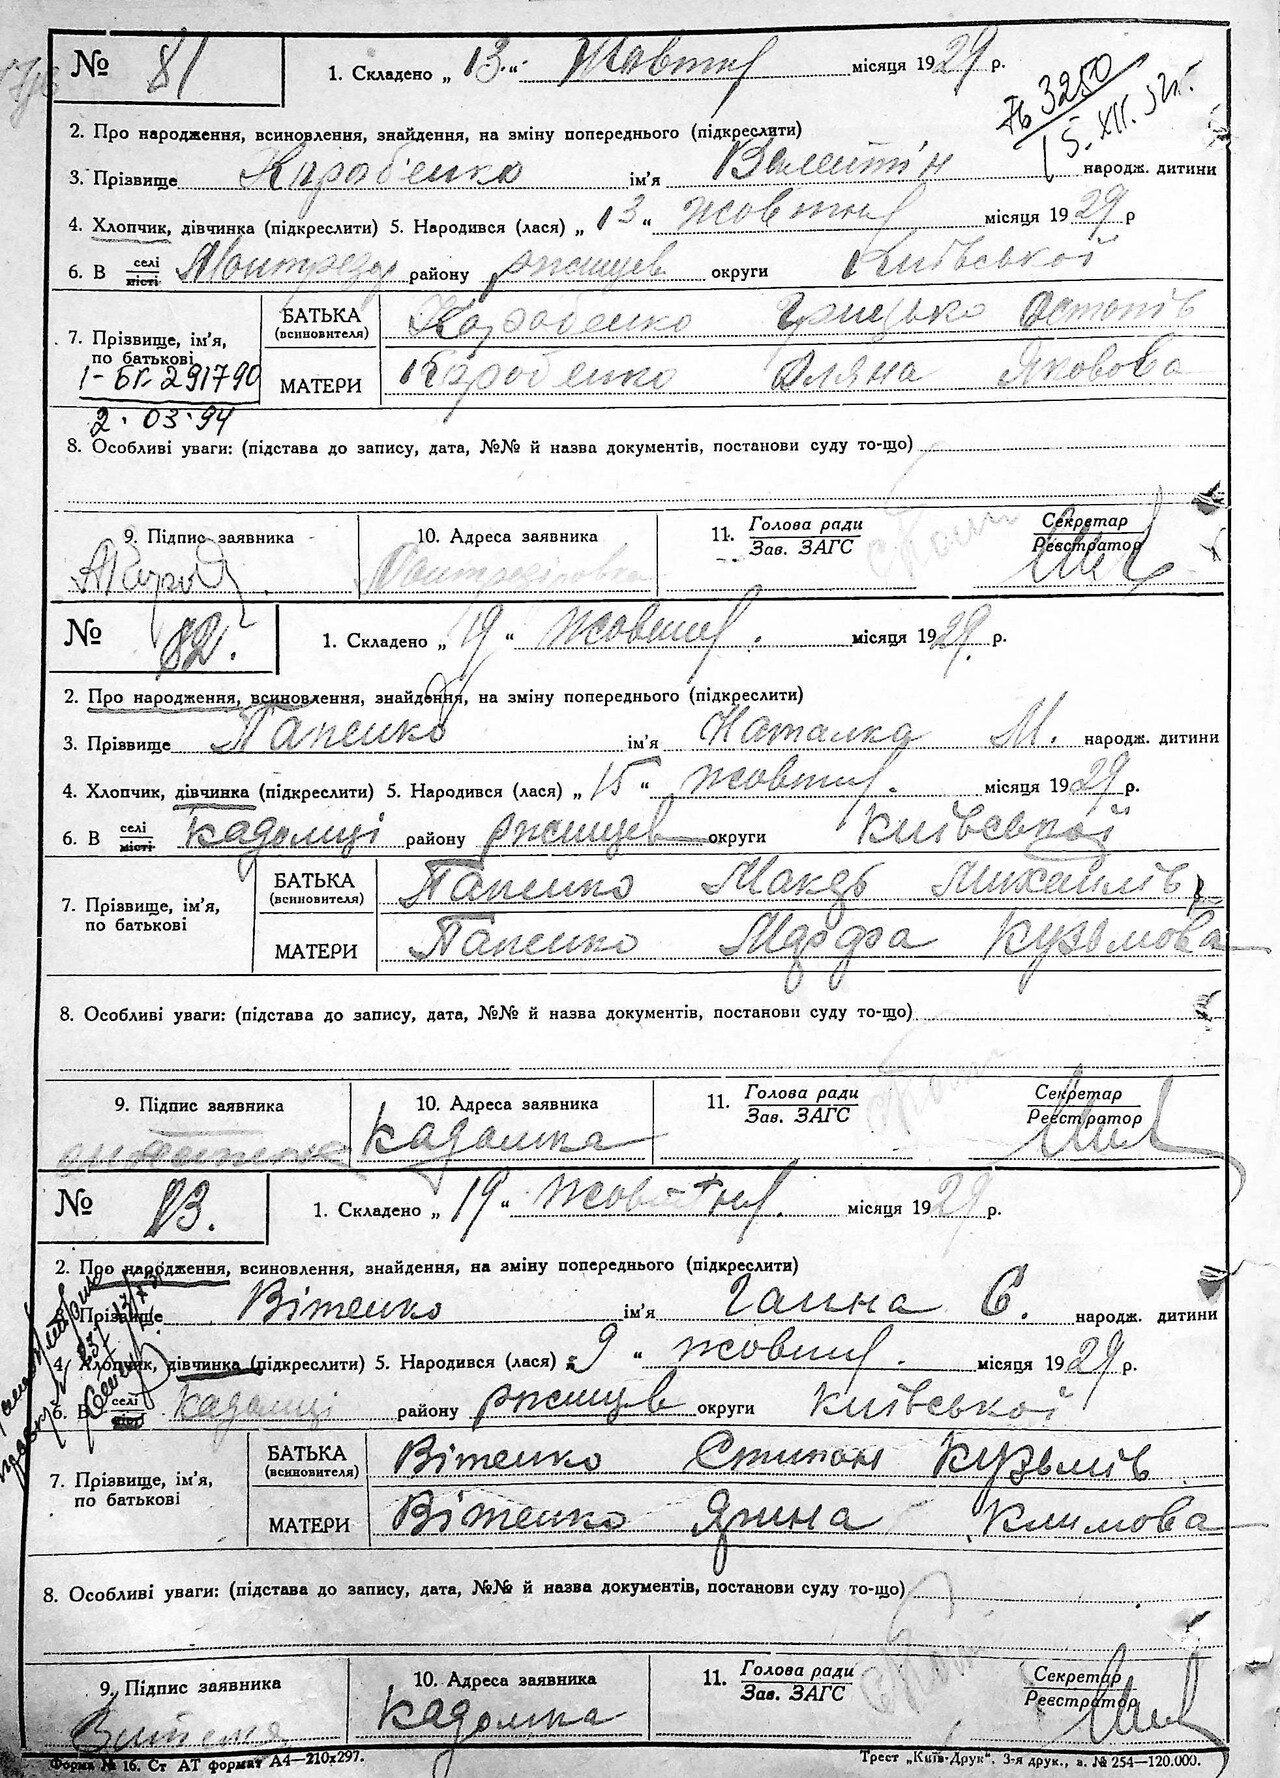 № 81 1. Складено „ 13 “ Жовтня місяця 1929 р.
№ 3250
5. XII. 52 г.
2. Про народження, всиновлення, знайдення, на зміну попереднього (підкреслити)
3. Прізвище Карабенко ім'я Валентін народж. дитини
4. Хлопчик, дівчинка (підкреслити) 5. Народився (лася) „ 13 “ жовтня місяця 1929 р
6. В селі місті району ржищев округи Київської
7. Прізвище, ім'я, по батькові
БАТЬКА (всиновителя) Карабенко Грицько Остапів
МАТЕРИ Карабенко Оляна Яковова
1-БГ. 291790
2.03.94
8. Особливі уваги: (підстава до запису, дата, №№ й назва документів, постанови суду то-що)
9. Підпис заявника 10. Адреса заявника 11. Голова ради Зав. ЗАГС Секретар Реєстратор
№ 82. 1. Складено „ 19 “ жовтня. місяця 1929. р.
2. Про народження, всиновлення, знайдення, на зміну попереднього (підкреслити)
3. Прізвище Папенко ім'я Наталка М. народж. дитини
4. Хлопчик, дівчинка (підкреслити) 5. Народився (лася) „ 15 “ жовтня. місяця 1929 р.
6. В селі місті кадомці району ржищев округи Київської
7. Прізвище, ім'я, по батькові
БАТЬКА (всиновителя) Папенко Михайлів
МАТЕРИ Папенко Кузьмова
8. Особливі уваги: (підстава до запису, дата, №№ й назва документів, постанови суду то-що)
9. Підпис заявника 10. Адреса заявника 11. Голова ради Зав. ЗАГС Секретар Реєстратор
кадомка
№ 83. 1. Складено „ 19 “ жовтня. місяця 1929 р.
2. Про народження, всиновлення, знайдення, на зміну попереднього (підкреслити)
3. Прізвище Вітенко ім'я Ганна С. народж. дитини
4. Хлопчик, дівчинка (підкреслити) 5. Народився (лася) „ 9 “ жовтня. місяця 1929 р.
6. В селі місті кадомці району ржищев округи Київської
7. Прізвище, ім'я, по батькові
БАТЬКА (всиновителя) Вітенко Степан Кузьмів
МАТЕРИ Вітенко Ярина Климова
8. Особливі уваги: (підстава до запису, дата, №№ й назва документів, постанови суду то-що)
9. Підпис заявника 10. Адреса заявника 11. Голова ради Зав. ЗАГС Секретар Реєстратор
кадомка
Форма № 16. Ст АТ формат А4—210х297. Трест „Київ-Друк“. 3-я друк., з. № 254—120.000.